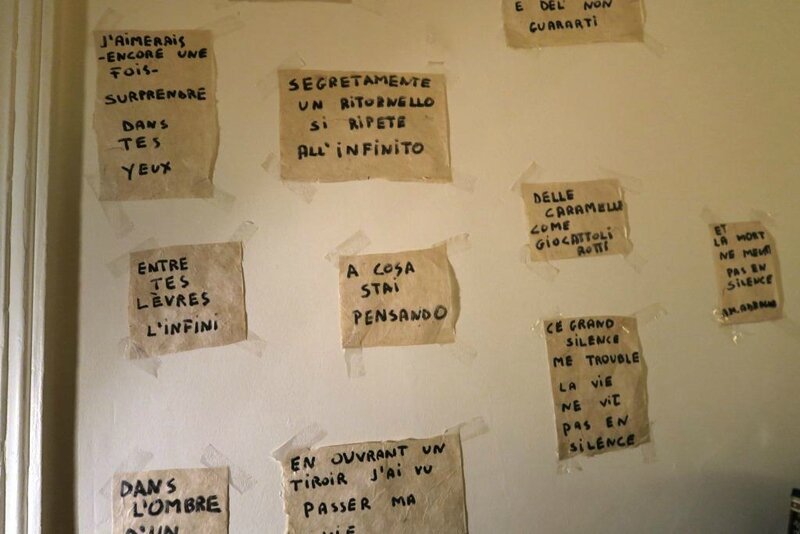 E DEL' NON
GUARARTI
J'AIMERAIS
-ENCORE UNE
FOIS-
SURPRENDRE
DANS
TES
YEUX
SEGRETAMENTE
UN RITORNELLO
SI RIPETE
ALL'INFINITO
DELLE
CARAMELLE
COME
GIOCATTOLI
ROTTI
ET
LA MORT
NE MEURT
PAS EN
SILENCE
ENTRE
TES
LÈVRES
L'INFINI
A COSA
STAI
PENSANDO
CE GRAND
SILENCE
ME TROUBLE
LA VIE
NE VIT
PAS EN
SILENCE
DANS
L'OMBRE
D'UN
EN OUVRANT UN
TIROIR J'AI VU
PASSER MA
VIE